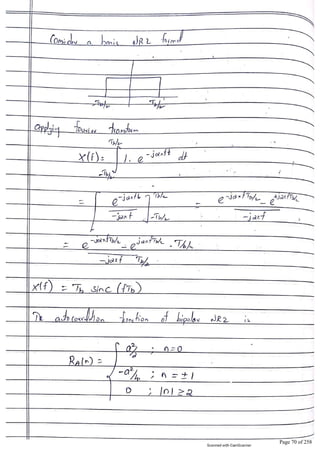 Consider a basic NRZ format
-Tb/2 Tb/2
Applying fourier transform
X(f) = ∫_{-Tb/2}^{Tb/2} 1. e^{-j2πft} dt
= [ e^{-j2πft} / -j2πf ]_{-Tb/2}^{Tb/2} = e^{-j2πfTb/2} - e^{j2πfTb/2} / -j2πf
= e^{-j2πfTb/2} - e^{j2πfTb/2} / -j2πf . Tb/2 / Tb/2
X(f) = Tb sinc (fTb)
The autocorrelation function of bipolar NRZ is
RA(n) = { a²/2 ; n=0
-a²/4 ; n = ±1
0 ; |n| ≥ 2
Scanned with CamScanner
Page 70 of 258